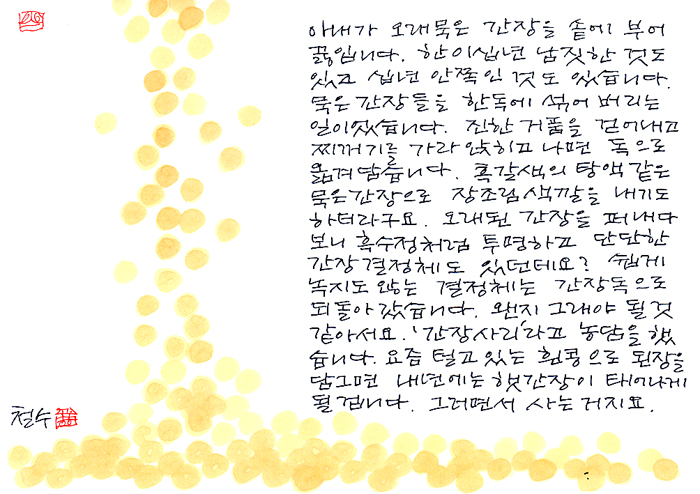 아내가 오래묵은 간장을 솥에 부어
끓입니다. 한 이십년 남짓한 것도
있고 십년 안쪽인 것도 있습니다.
묵은 간장들을 한독에 섞어 버리는
일이었습니다. 진한 거품을 걷어내고
찌꺼기를 가라 앉히고 나면 독으로
옮겨담습니다. 흑갈색의 탕액 같은
묵은간장으로 장조림 색깔을 내기도
하더라구요. 오래된 간장을 퍼내다
보니 흑수정처럼 투명하고 단단한
간장결정체도 있던데요? 쉽게
녹지도 않는 결정체는 간장독으로
되돌아 갔습니다. 왠지 그래야 될것
같아서요. '간장사리'라고 농담을 했
습니다. 요즘 털고 있는 흰콩으로 된장을
담그면 내년에는 햇간장이 태어나게
될겁니다. 그러면서 사는거지요.
철수